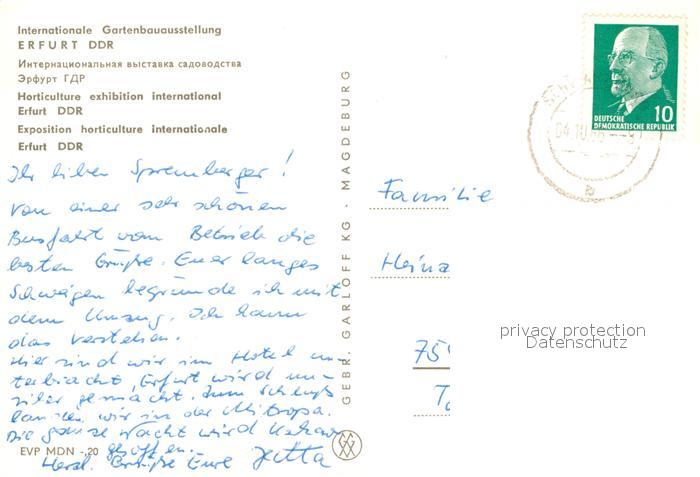 Internationale Gartenbauausstellung
ERFURT DDR
Интернациональная выставка садоводства
Эрфурт ГДР
Horticulture exhibition international
Erfurt DDR
Exposition horticulture internationale
Erfurt DDR
Ihr lieben Spremberger!
Von einer sehr schönen
Busfahrt vom Betrieb die
besten Grüße. Euer langes
Schweigen begründe ich mit
dem Umzug. Ich kann
das verstehen.
Hier sind wir im Hotel un-
terbracht, Erfurt wird un-
sicher gemacht. Zum Schluß
landen wir in der Mitropa.
Die ganze Nacht wird
gesoffen.
Herzl. Grüße Eure Jutta
EVP MDN -,20
GEBR. GARLOFF KG · MAGDEBURG
10
DEUTSCHE
DEMOKRATISCHE REPUBLIK
04.10
b
Familie
Heinz
75
privacy protection
Datenschutz